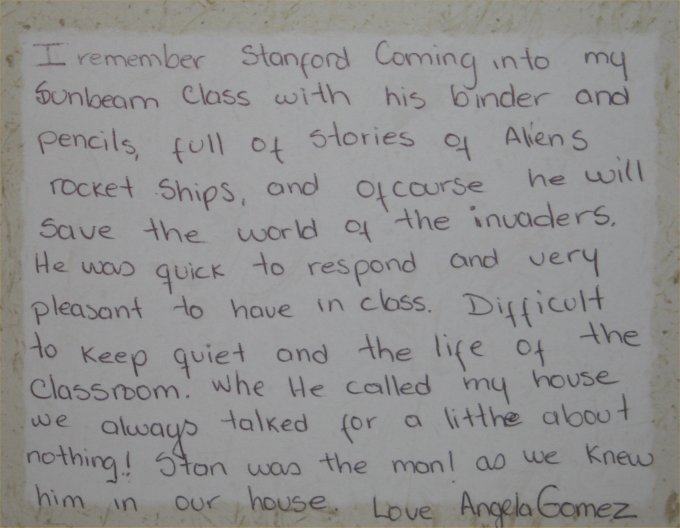 I remember Stanford Coming into my
Sunbeam Class with his binder and
pencils, full of stories of Aliens
rocket Ships, and ofcourse he will
Save the world of the invaders.
He was quick to respond and very
pleasant to have in class. Difficult
to keep quiet and the life of the
Classroom. Whe He called my house
we always talked for a litthe about
nothing! Stan was the man! as we knew
him in our house. Love Angela Gomez